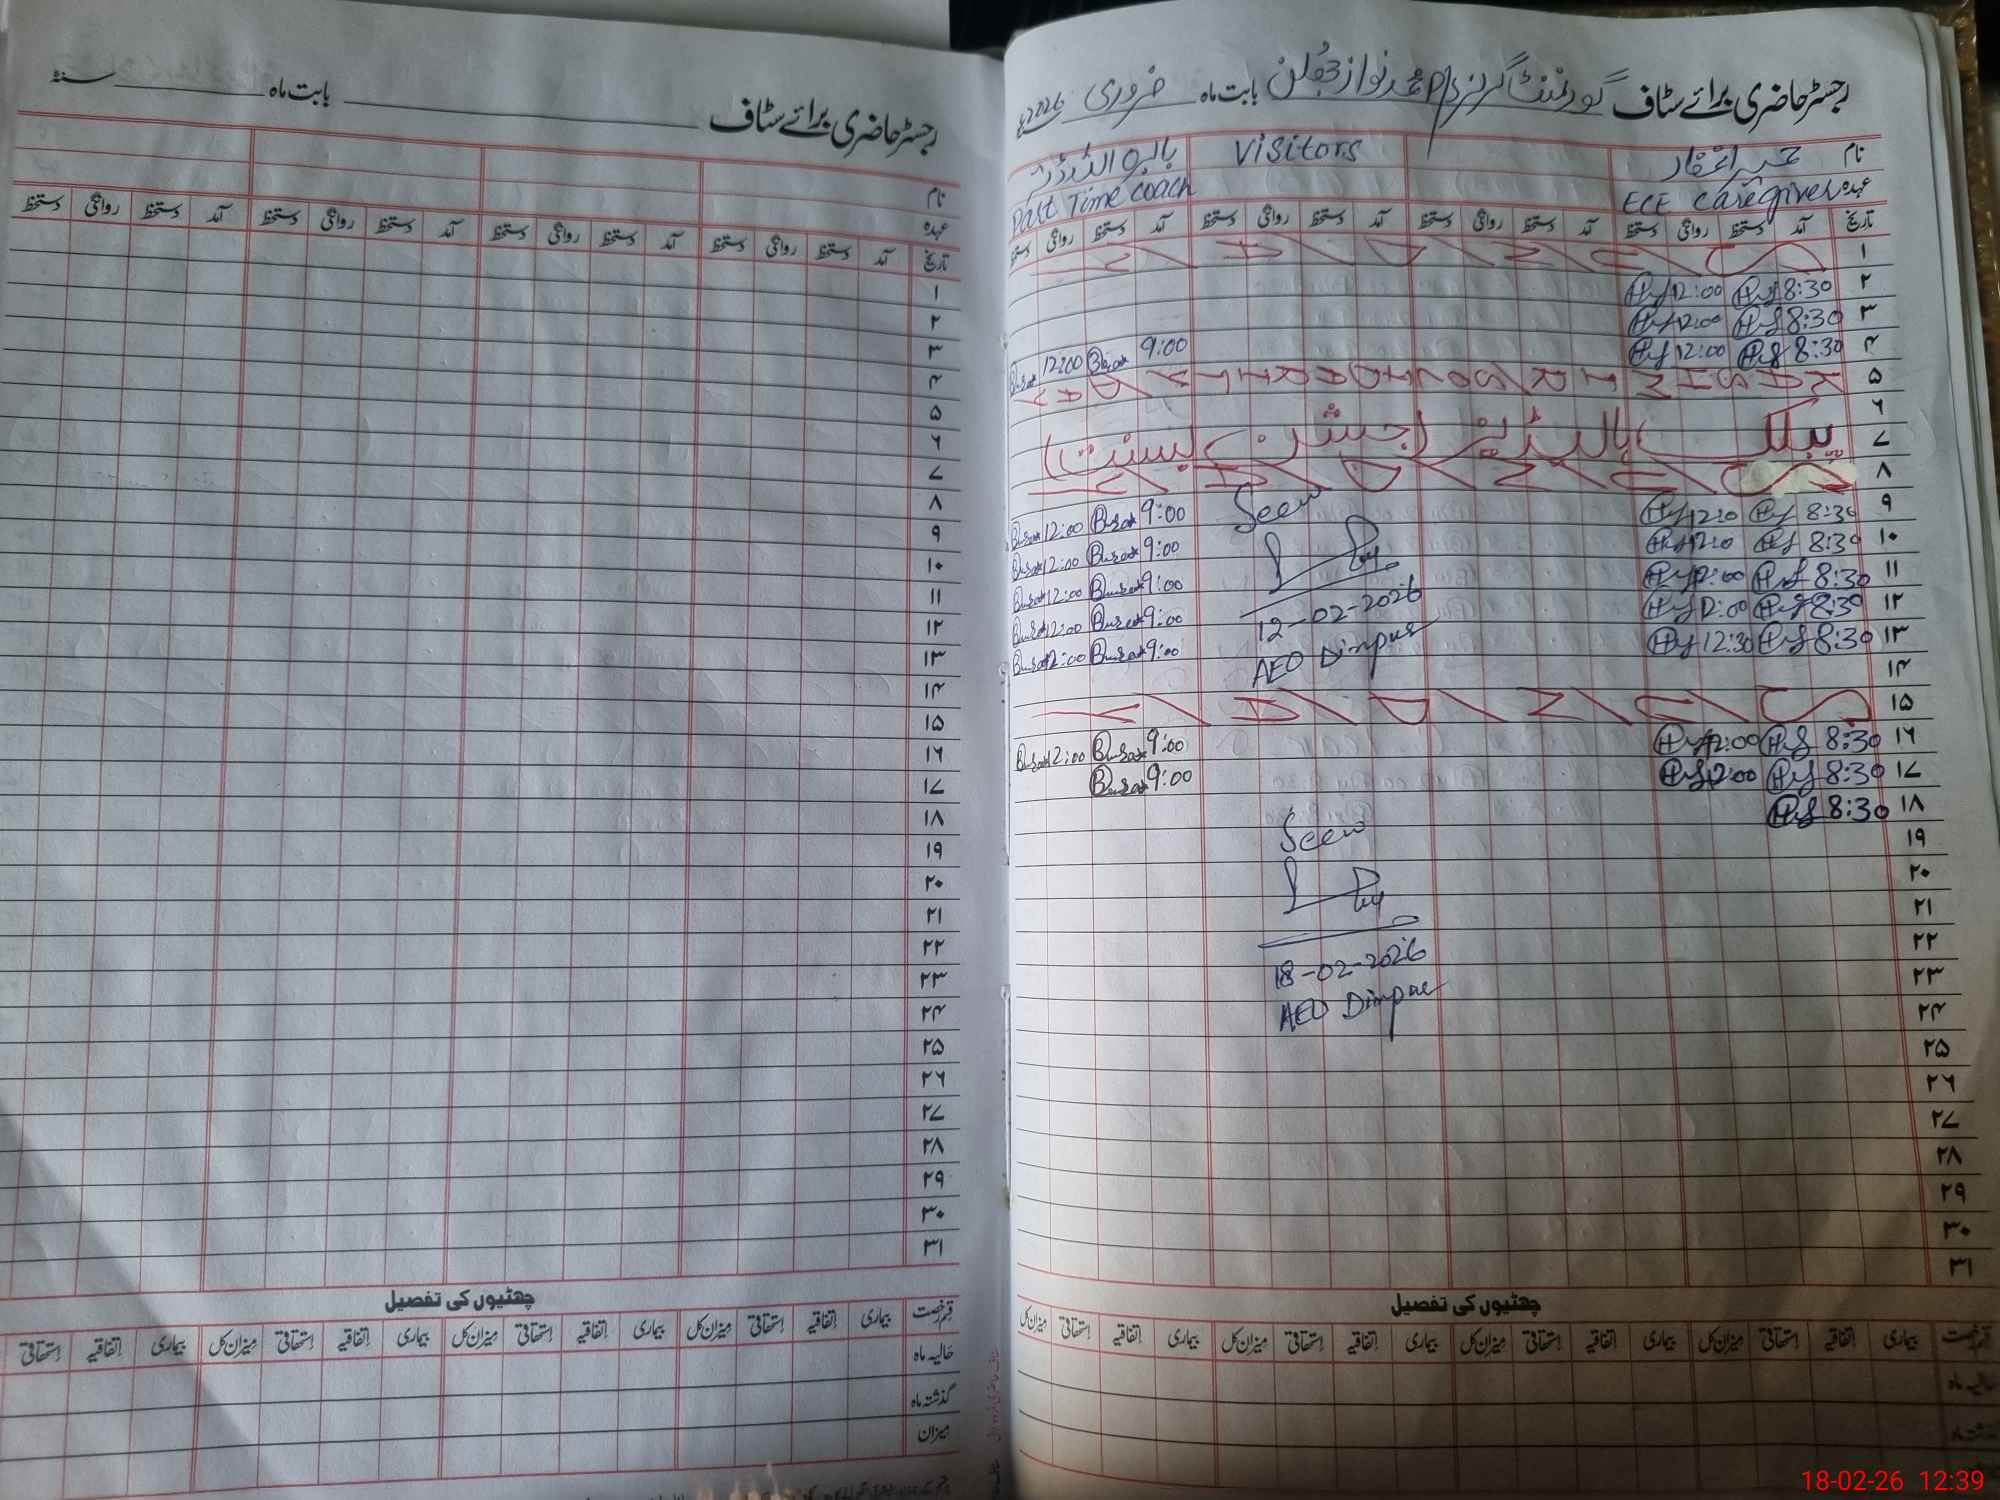 رجسٹر حاضری برائے سٹاف گورنمنٹ گرلز P/S محمد نواز بابت ماہ فروری 2026ء
نام
Visitors
عہدہ ECE Caregiver
Part Time Coach
تاریخ آمد دستخط روانگی دستخط آمد دستخط روانگی دستخط آمد دستخط روانگی دستخط آمد دستخط روانگی دستخط
۱ S U N D A Y
۲ 8:30 12:00
۳ 8:30 12:00
۴ 8:30 12:00 9:00 12:00
۵ KASHMIR SOLIDARITY DAY
۶
۷ پبلک ہالیڈیز (جشن بسنت)
۸ S U N D A Y
۹ 8:30 12:0 Seen 9:00 12:00
۱۰ 8:30 12:0 9:00 12:00
۱۱ 8:30 12:00 9:00 12:00
۱۲ 8:30 12:00 12-02-2026 9:00 12:00
۱۳ 8:30 12:30 AEO Dimpur 9:00 12:00
۱۴
۱۵ S U N D A Y
۱۶ 8:30 12:00 9:00 12:00
۱۷ 8:30 12:00 9:00
۱۸ 8:30
Seen
۱۹
۲۰
۲۱
۲۲
18-02-2026
۲۳
AEO Dimpur
۲۴
۲۵
۲۶
۲۷
۲۸
۲۹
۳۰
۳۱
چھٹیوں کی تفصیل
قسم رخصت بیماری اتفاقیہ استحقاقی میزان کل بیماری اتفاقیہ استحقاقی میزان کل بیماری اتفاقیہ استحقاقی میزان کل بیماری اتفاقیہ استحقاقی میزان کل
رجسٹر حاضری برائے سٹاف بابت ماہ سنہ
نام
عہدہ آمد دستخط روانگی دستخط آمد دستخط روانگی دستخط آمد دستخط روانگی دستخط
تاریخ آمد دستخط روانگی دستخط
۱
۲
۳
۴
۵
۶
۷
۸
۹
۱۰
۱۱
۱۲
۱۳
۱۴
۱۵
۱۶
۱۷
۱۸
۱۹
۲۰
۲۱
۲۲
۲۳
۲۴
۲۵
۲۶
۲۷
۲۸
۲۹
۳۰
۳۱
چھٹیوں کی تفصیل
قسم رخصت بیماری اتفاقیہ استحقاقی میزان کل بیماری اتفاقیہ استحقاقی میزان کل بیماری اتفاقیہ استحقاقی میزان کل بیماری اتفاقیہ استحقاقی
حالیہ ماہ
گذشتہ ماہ
میزان
18-02-26 12:39